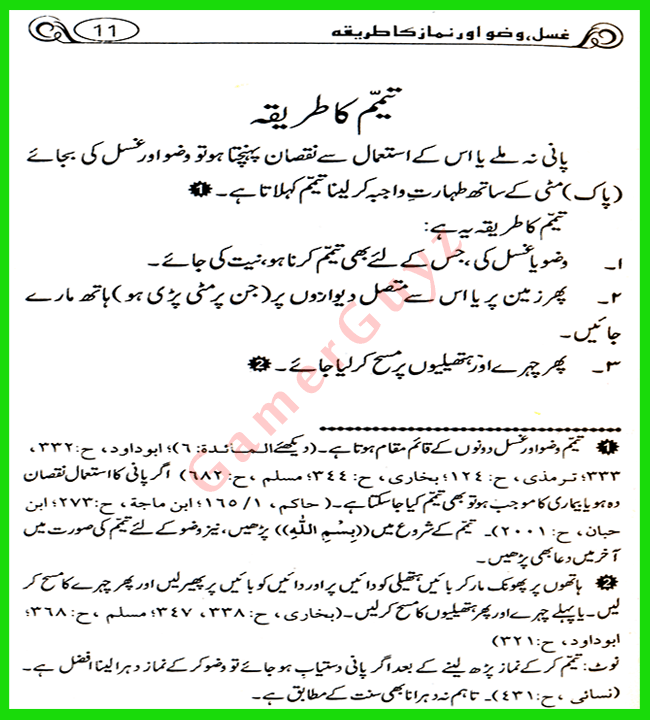 غسل، وضو اور نماز کا طریقہ
11
تیمّم کا طریقہ
پانی نہ ملے یا اس کے استعمال سے نقصان پہنچتا ہو تو وضو اور غسل کی بجائے
(پاک) مٹی کے ساتھ طہارتِ واجبہ کر لینا تیمّم کہلاتا ہے۔ ❶
تیمّم کا طریقہ یہ ہے:
۱۔ وضو یا غسل کی، جس کے لئے بھی تیمّم کرنا ہو، نیت کی جائے۔
۲۔ پھر زمین پر یا اس سے متصل دیوازوں پر (جن پر مٹی پڑی ہو) ہاتھ مارے
جائیں۔
۳۔ پھر چہرے اور ہتھیلیوں پر مسح کر لیا جائے۔ ❷
GamerGuyz
❶ تیمّم وضو اور غسل دونوں کے قائم مقام ہوتا ہے۔ (دیکھئے المائدة: ٦)؛ ابوداود، ح:٣٣٢،
٣٣٣؛ ترمذی، ح:١٢٤؛ بخاری، ح:٣٤٤؛ مسلم، ح:٦٨٢) اگر پانی کا استعمال نقصان
دہ ہو یا بیماری کا موجب ہو تو بھی تیمّم کیا جا سکتا ہے۔ (حاکم، ١/١٦٥؛ ابن ماجة، ح:٢٧٣؛ ابن
حبان، ح:٢٠٠١)۔ تیمّم کے شروع میں ((بِسْمِ اللّٰهِ)) پڑھیں، نیز وضو کے لئے تیمّم کی صورت میں
آخر میں دعا بھی پڑھیں۔
❷ ہاتھوں پر پھونک مار کر بائیں ہتھیلی کو دائیں پر اور دائیں کو بائیں پر پھیر لیں اور پھر چہرے کا مسح کر
لیں۔ یا پہلے چہرے اور پھر ہتھیلیوں کا مسح کر لیں۔ (بخاری، ح:٣٣٨، ٣٤٧؛ مسلم، ح:٣٦٨؛
ابوداود، ح:٣٢١)
نوٹ: تیمّم کر کے نماز پڑھ لینے کے بعد اگر پانی دستیاب ہو جائے تو وضو کر کے نماز دہرا لینا افضل ہے۔
(نسائی، ح:٤٣١)۔ تاہم نہ دہرانا بھی سنت کے مطابق ہے۔